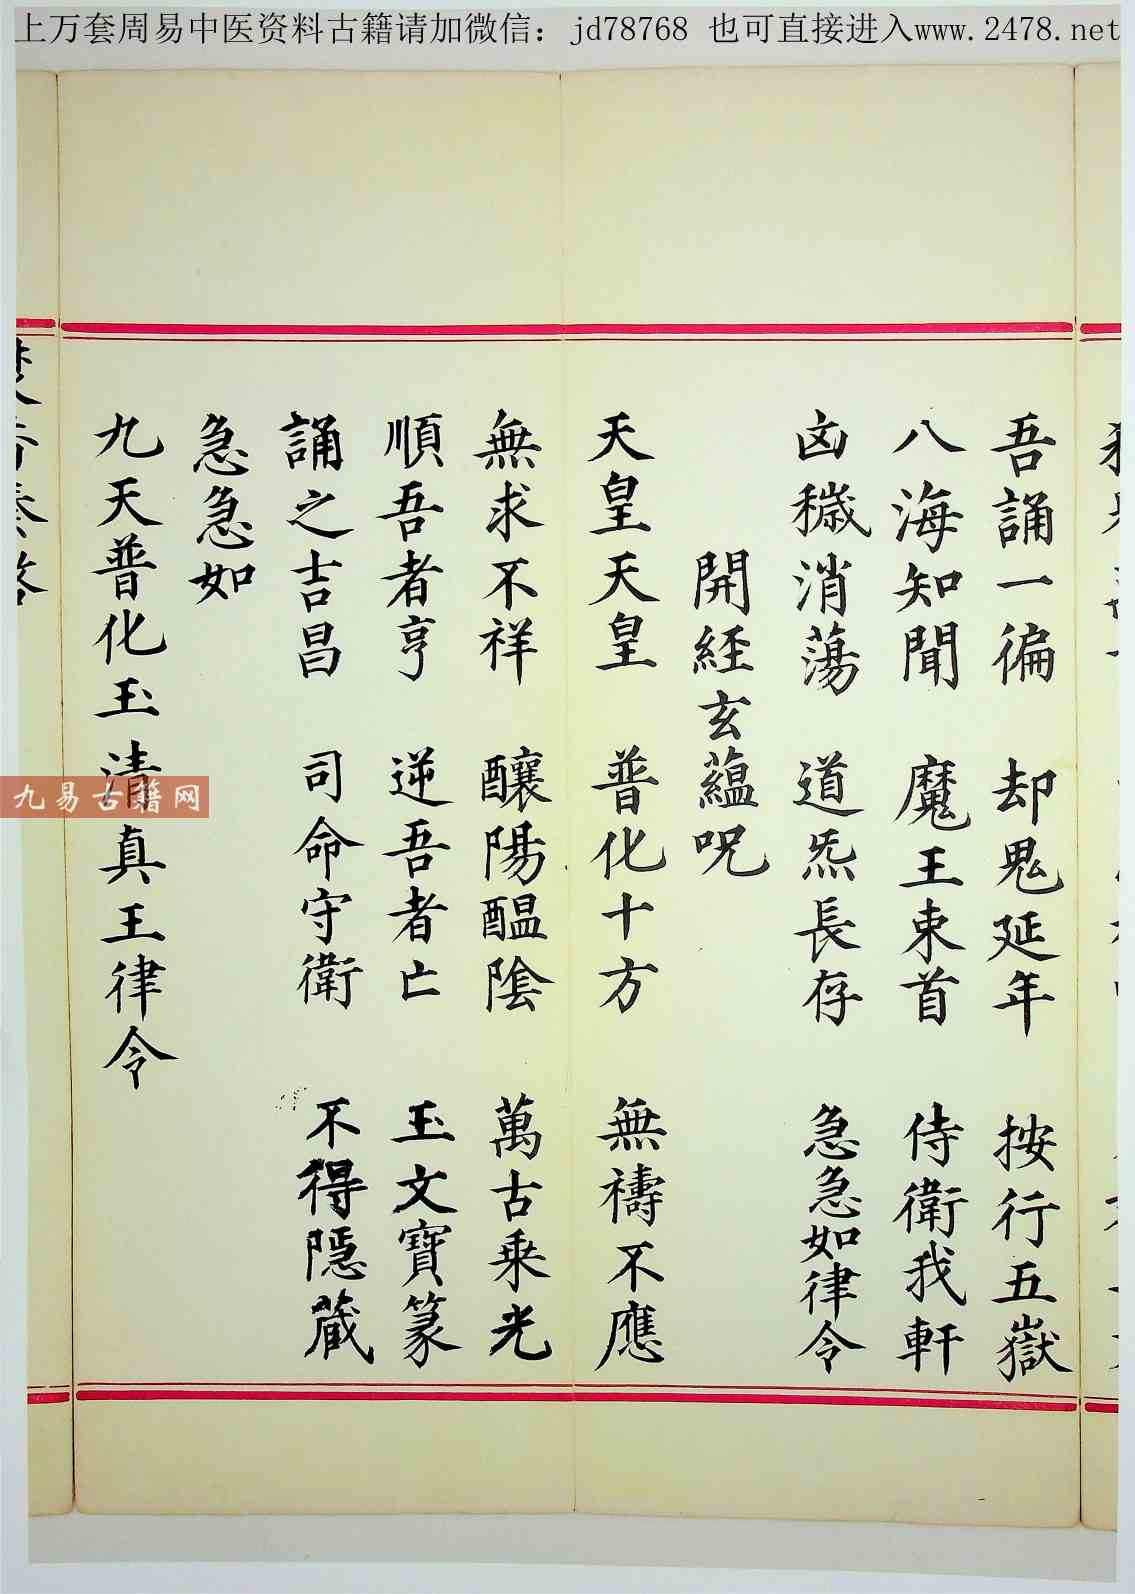 上万套周易中医资料古籍请加微信：jd78768 也可直接进入www.2478.net
吾誦一徧 却鬼延年 按行五嶽
八海知聞 魔王束首 侍衛我軒
凶穢消蕩 道炁長存 急急如律令
開經玄蘊呪
天皇天皇 普化十方 無禱不應
無求不祥 釀陽醖陰 萬古乘光
順吾者亨 逆吾者亡 玉文寶篆
誦之吉昌 司命守衛 不得隱藏
急急如
九天普化玉清真王律令
九易古籍网